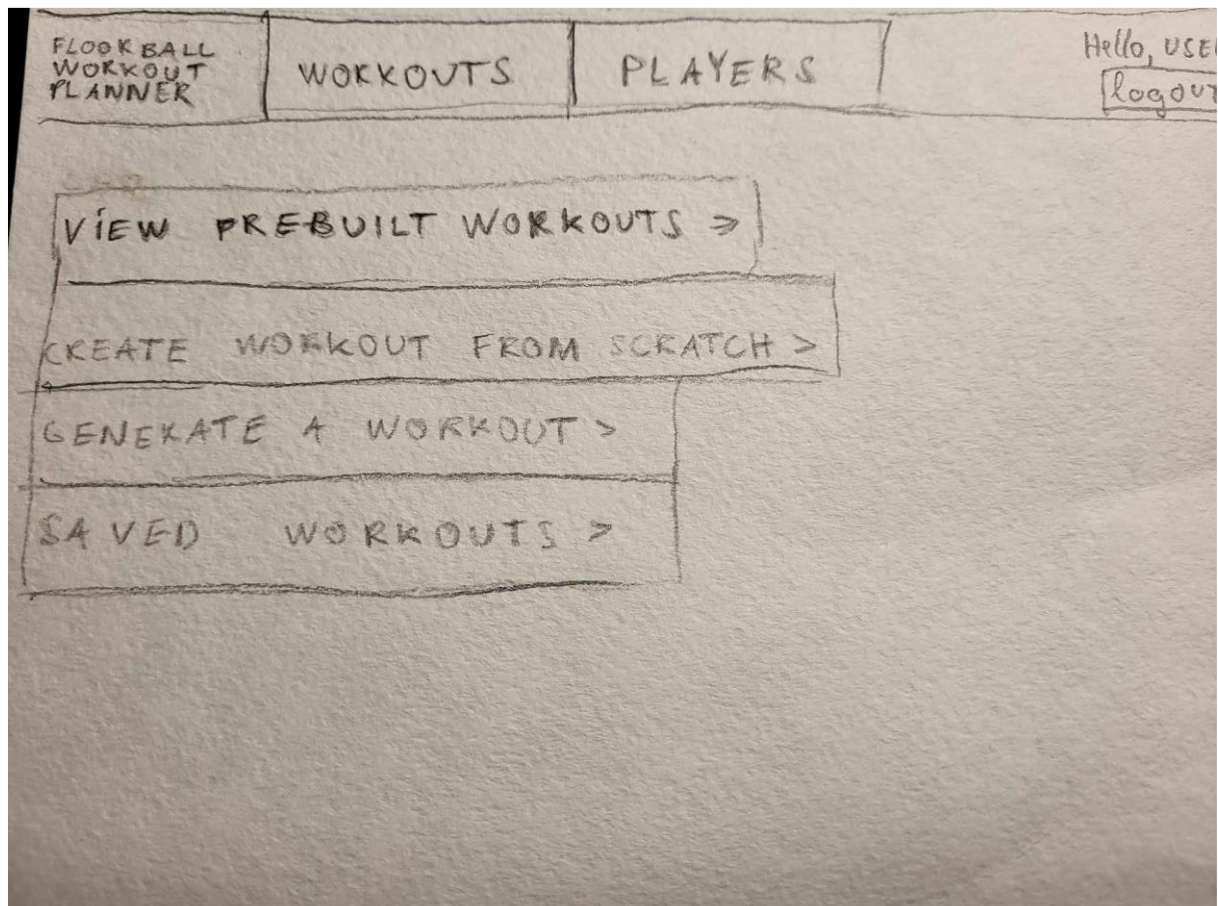 FLOORBALL
WORKOUT
PLANNER
WORKOUTS
PLAYERS
Hello, USE
logout
VIEW PREBUILT WORKOUTS >
CREATE WORKOUT FROM SCRATCH >
GENERATE A WORKOUT >
SAVED WORKOUTS >